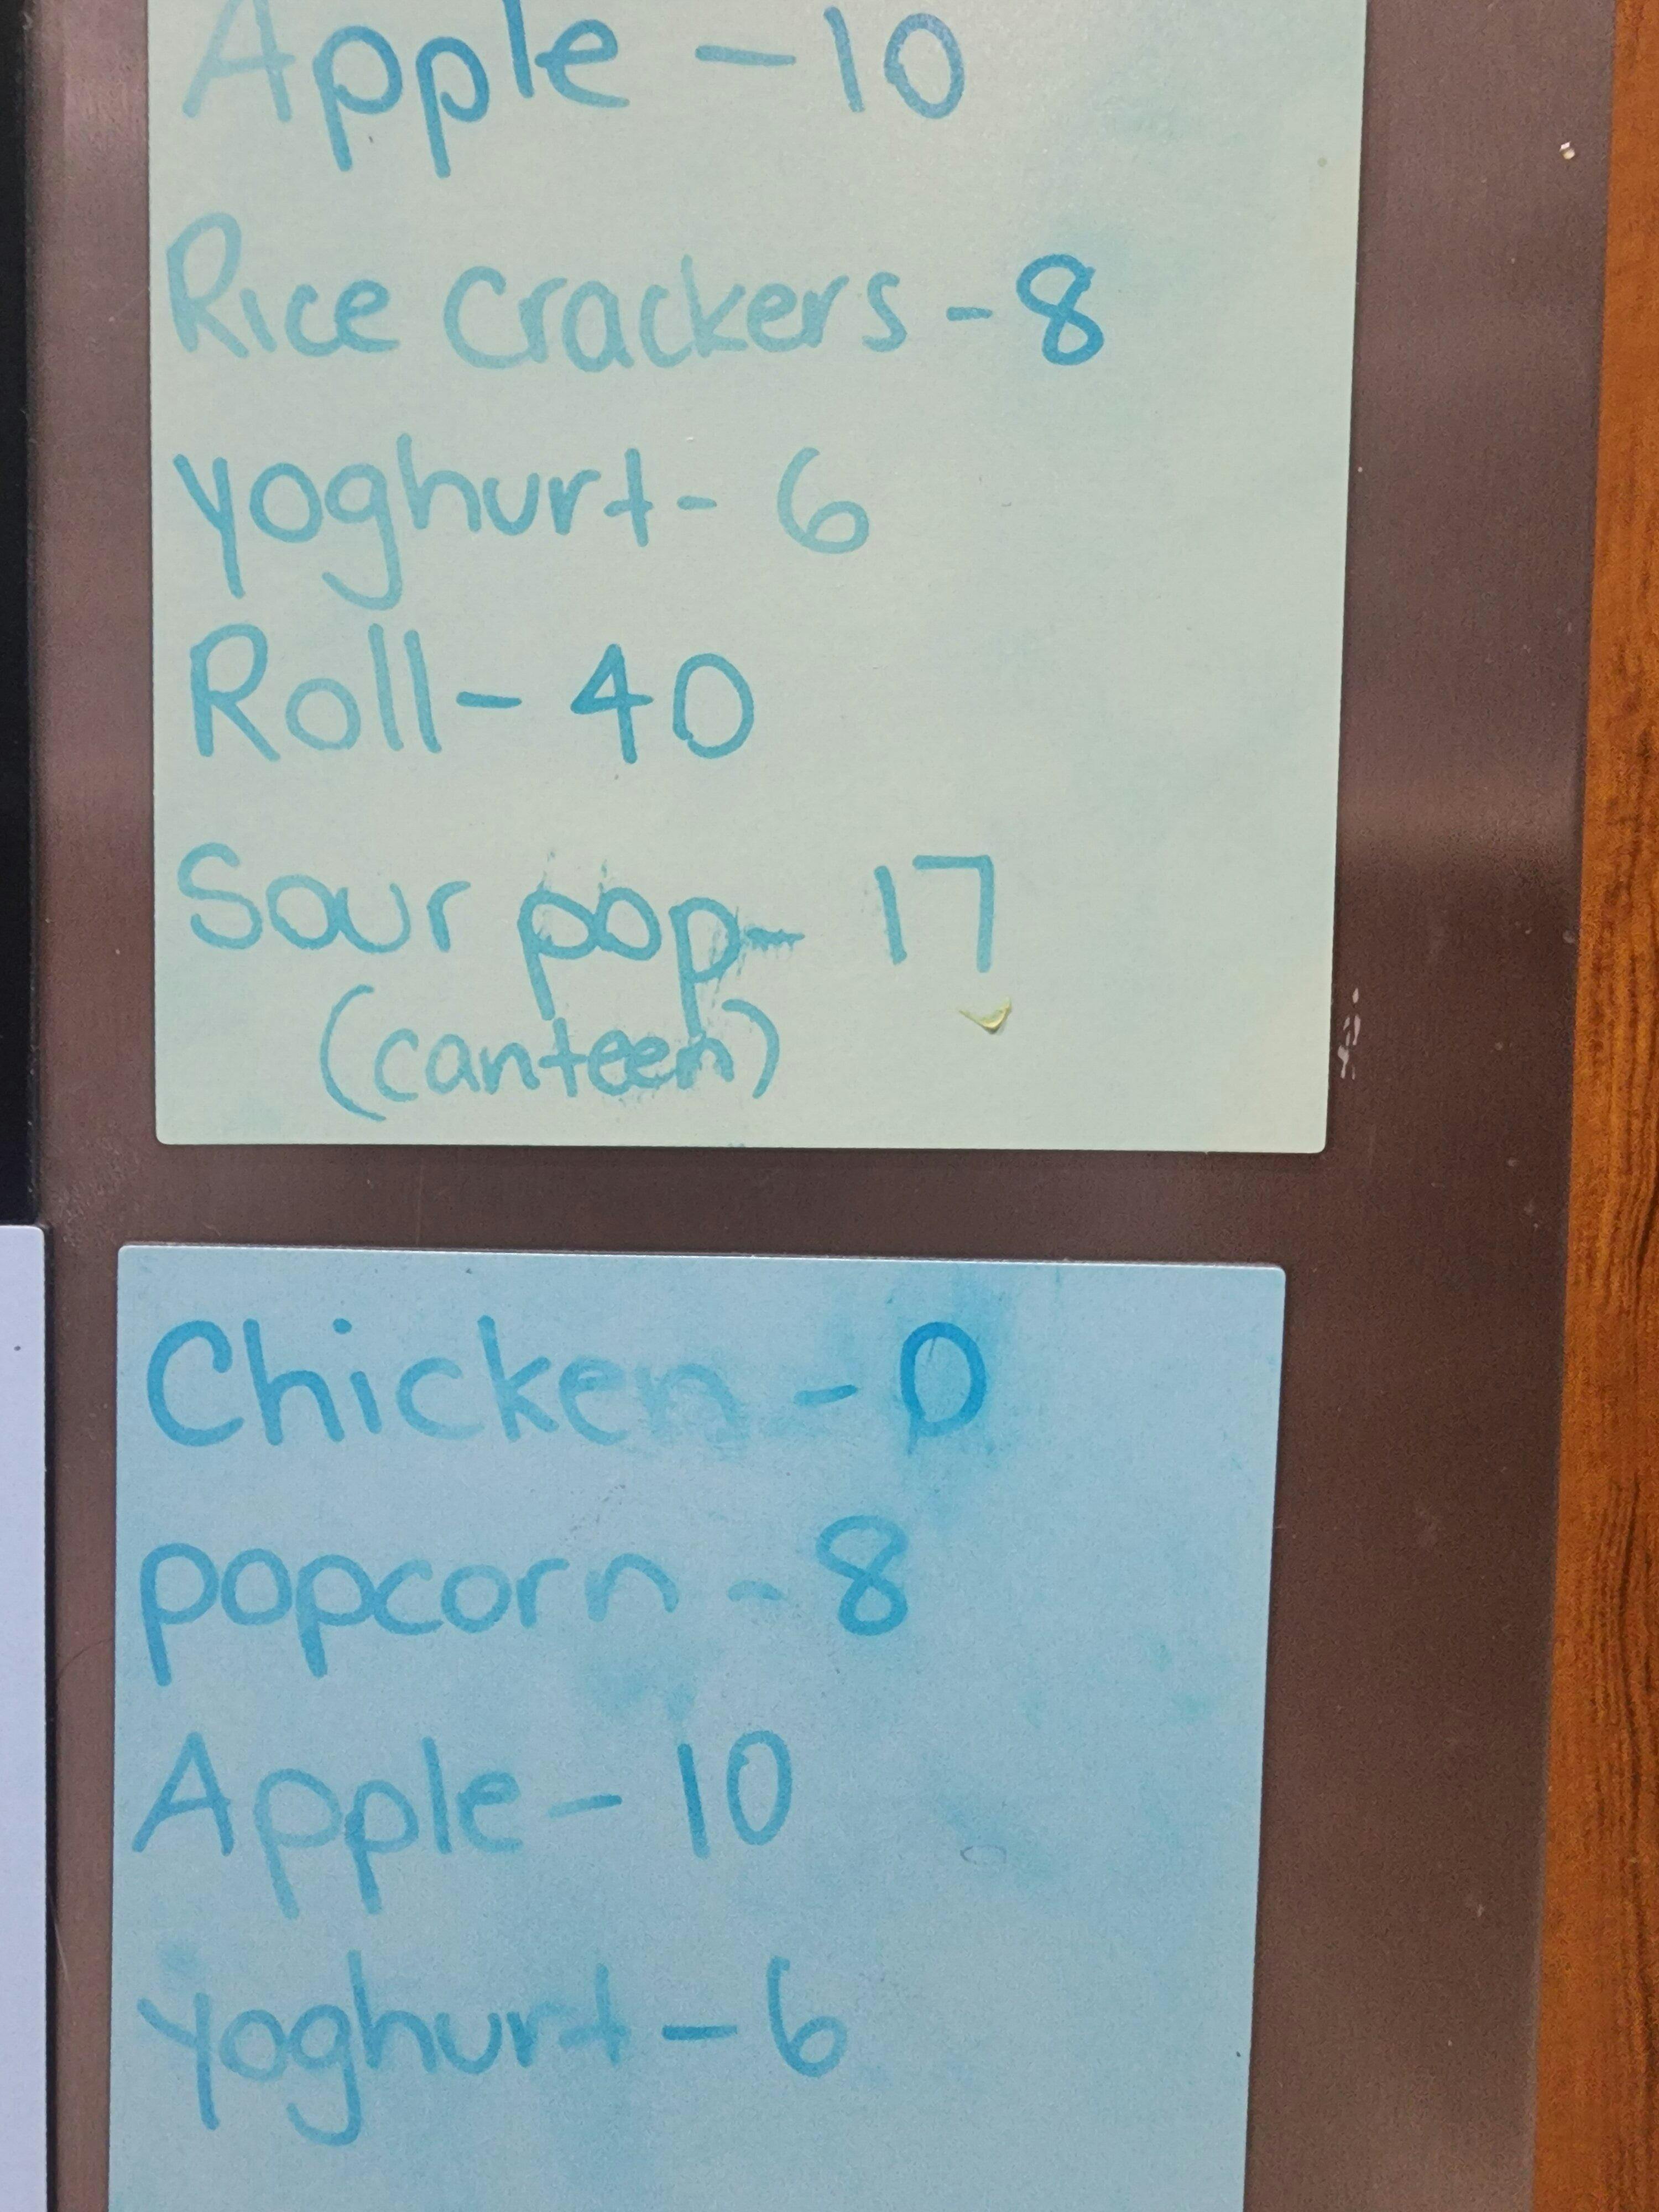 Apple - 10
Rice crackers - 8
yoghurt - 6
Roll - 40
Sour pop - 17
(canteen)
Chicken - 0
popcorn - 8
Apple - 10
yoghurt - 6